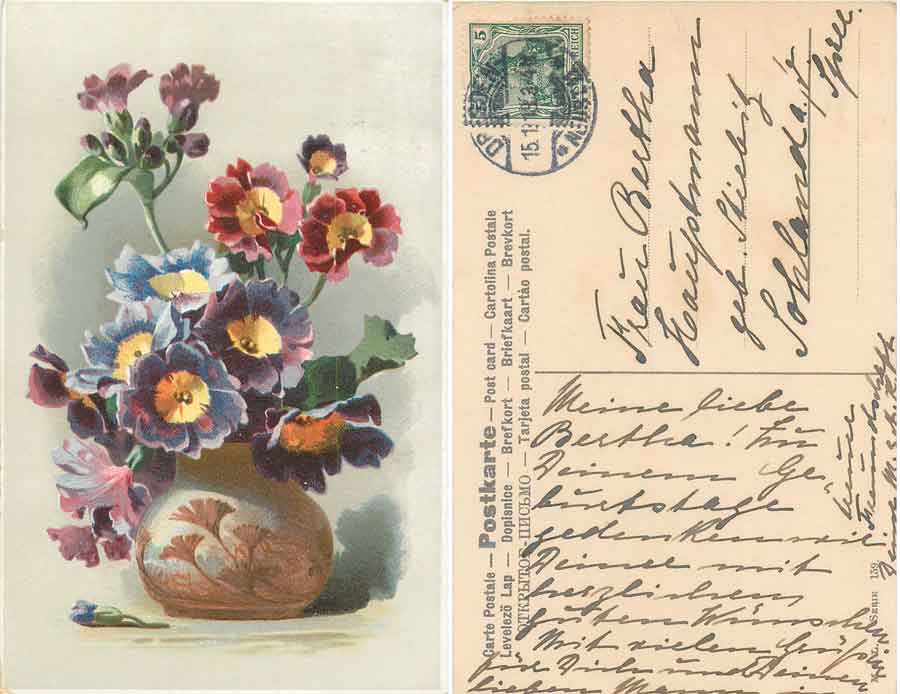 5
REICH
15.12
Frau Bertha
Hauptmann
geb. Stiebitz
Sohland a/d
Spree.
Carte Postale — Postkarte — Post card — Cartolina Postale
Levelező Lap — Dopisnice — Brefkort — Briefkaart — Brevkort
ОТКРЫТОЕ-ПИСЬМО — Tarjeta postal — Cartão postal.
SERIE 159
Meine liebe
Bertha! Zu
Deinem Ge-
burtstage
gedenken wir
Deiner mit
herzlichen
guten Wünschen
Mit vielen
für Dich und Deinen
lieben Mann
treue
Freundschaft
Deine